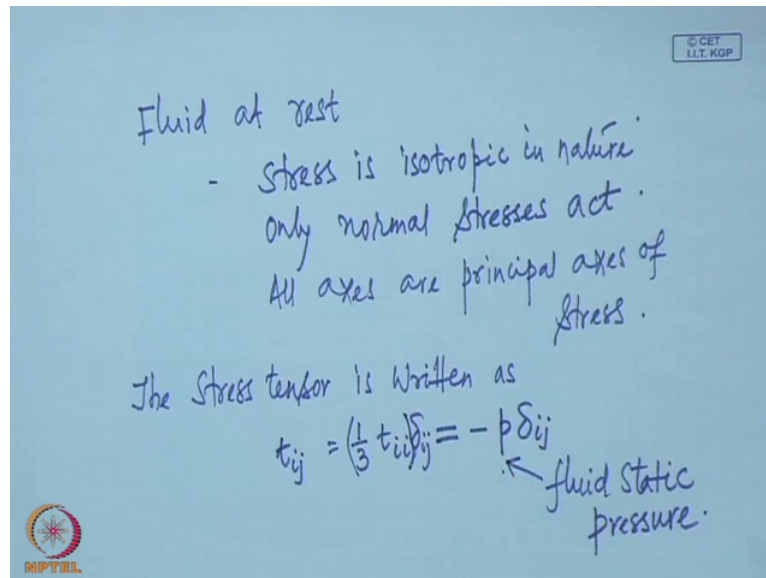 © CET
I.I.T. KGP
Fluid at rest
- Stress is isotropic in nature.
only normal stresses act.
All axes are principal axes of
stress.
The stress tensor is written as
t_ij = (1/3 t_ii) δ_ij = - p δ_ij
fluid static
pressure.
NPTEL